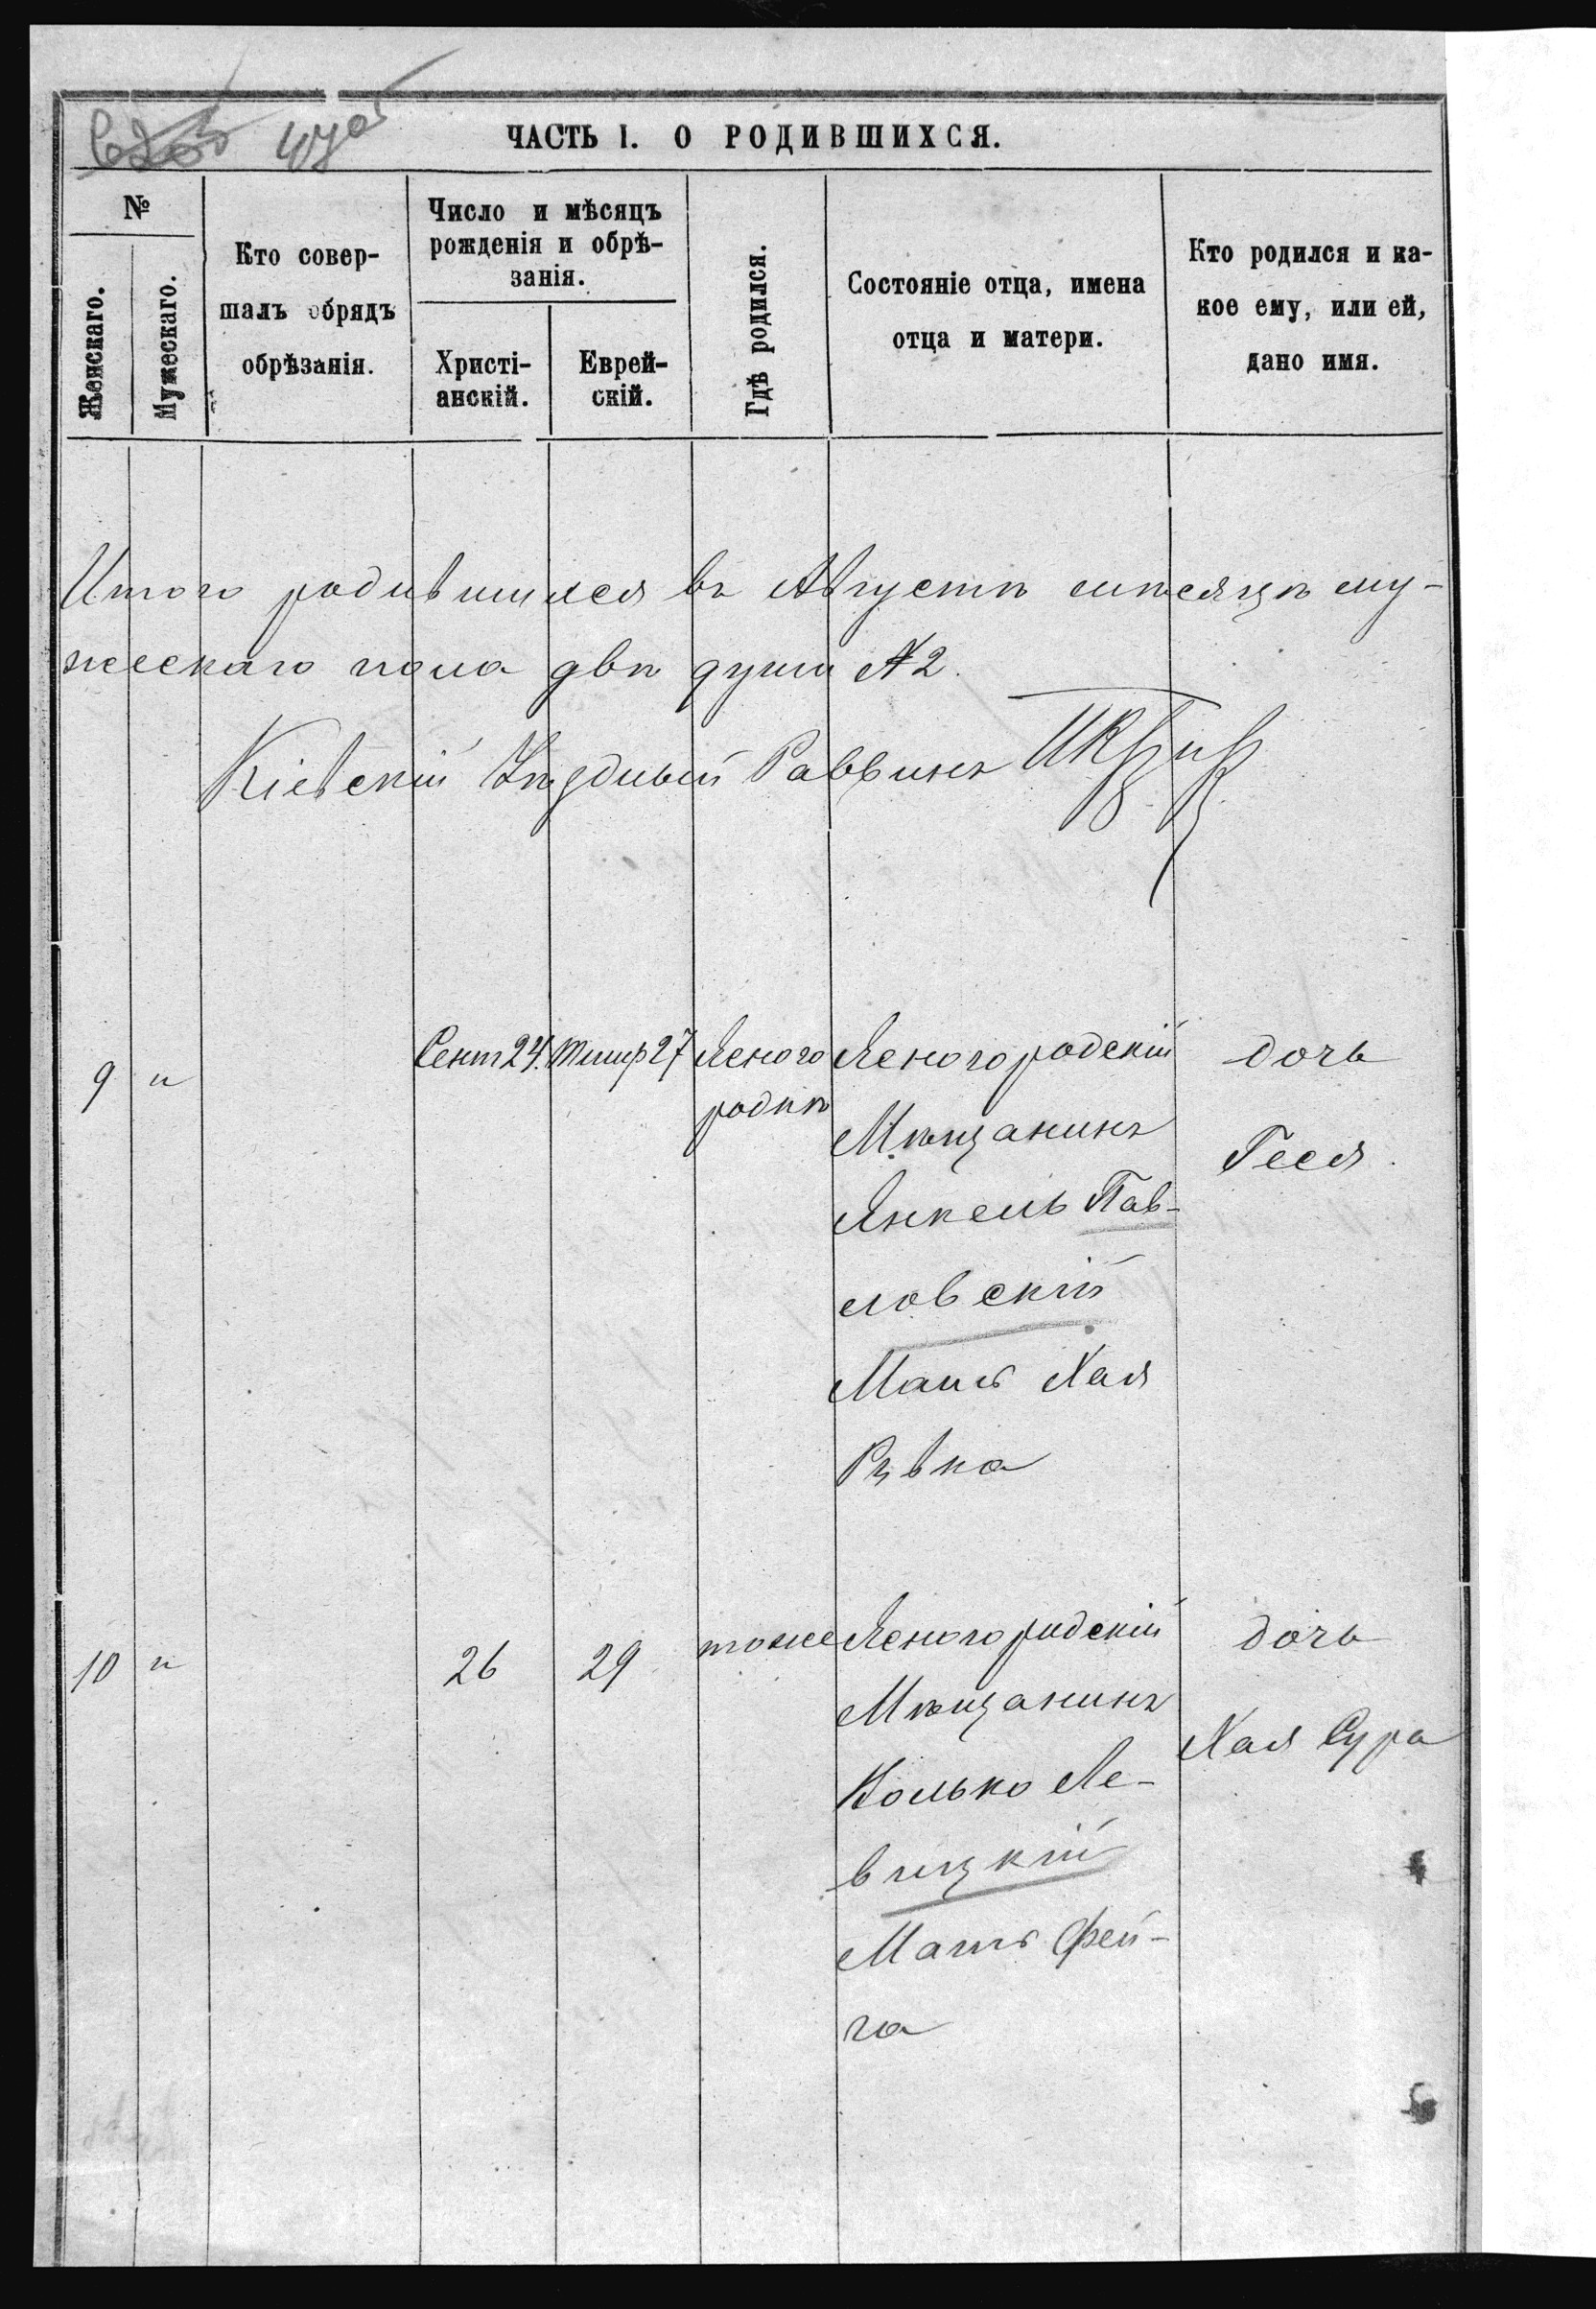 ЧАСТЬ I. О РОДИВШИХСЯ.
№
Женскаго.
Мужескаго.
Кто совер-
шалъ обрядъ
обрѣзанія.
Число и мѣсяцъ
рожденія и обрѣ-
занія.
Христі-
анскій.
Еврей-
скій.
Гдѣ родился.
Состояніе отца, имена
отца и матери.
Кто родился и ка-
кое ему, или ей,
дано имя.
Итого родившихся въ Августѣ мѣсяцѣ му-
жескаго пола двѣ души № 2.
Кіевскій Уѣздный Раввинъ
9 "
Сент 24.
Тишр 27
Ясного
родкѣ
Ясногородскій
Мѣщанинъ
Янкель Пав-
ловскій
Мать Хая
Ривка
дочь
Геся.
10 "
26
29
тоже
Ясногородскій
Мѣщанинъ
Волько Ле-
вицкій
Мать Фей-
га
дочь
Хая Сура